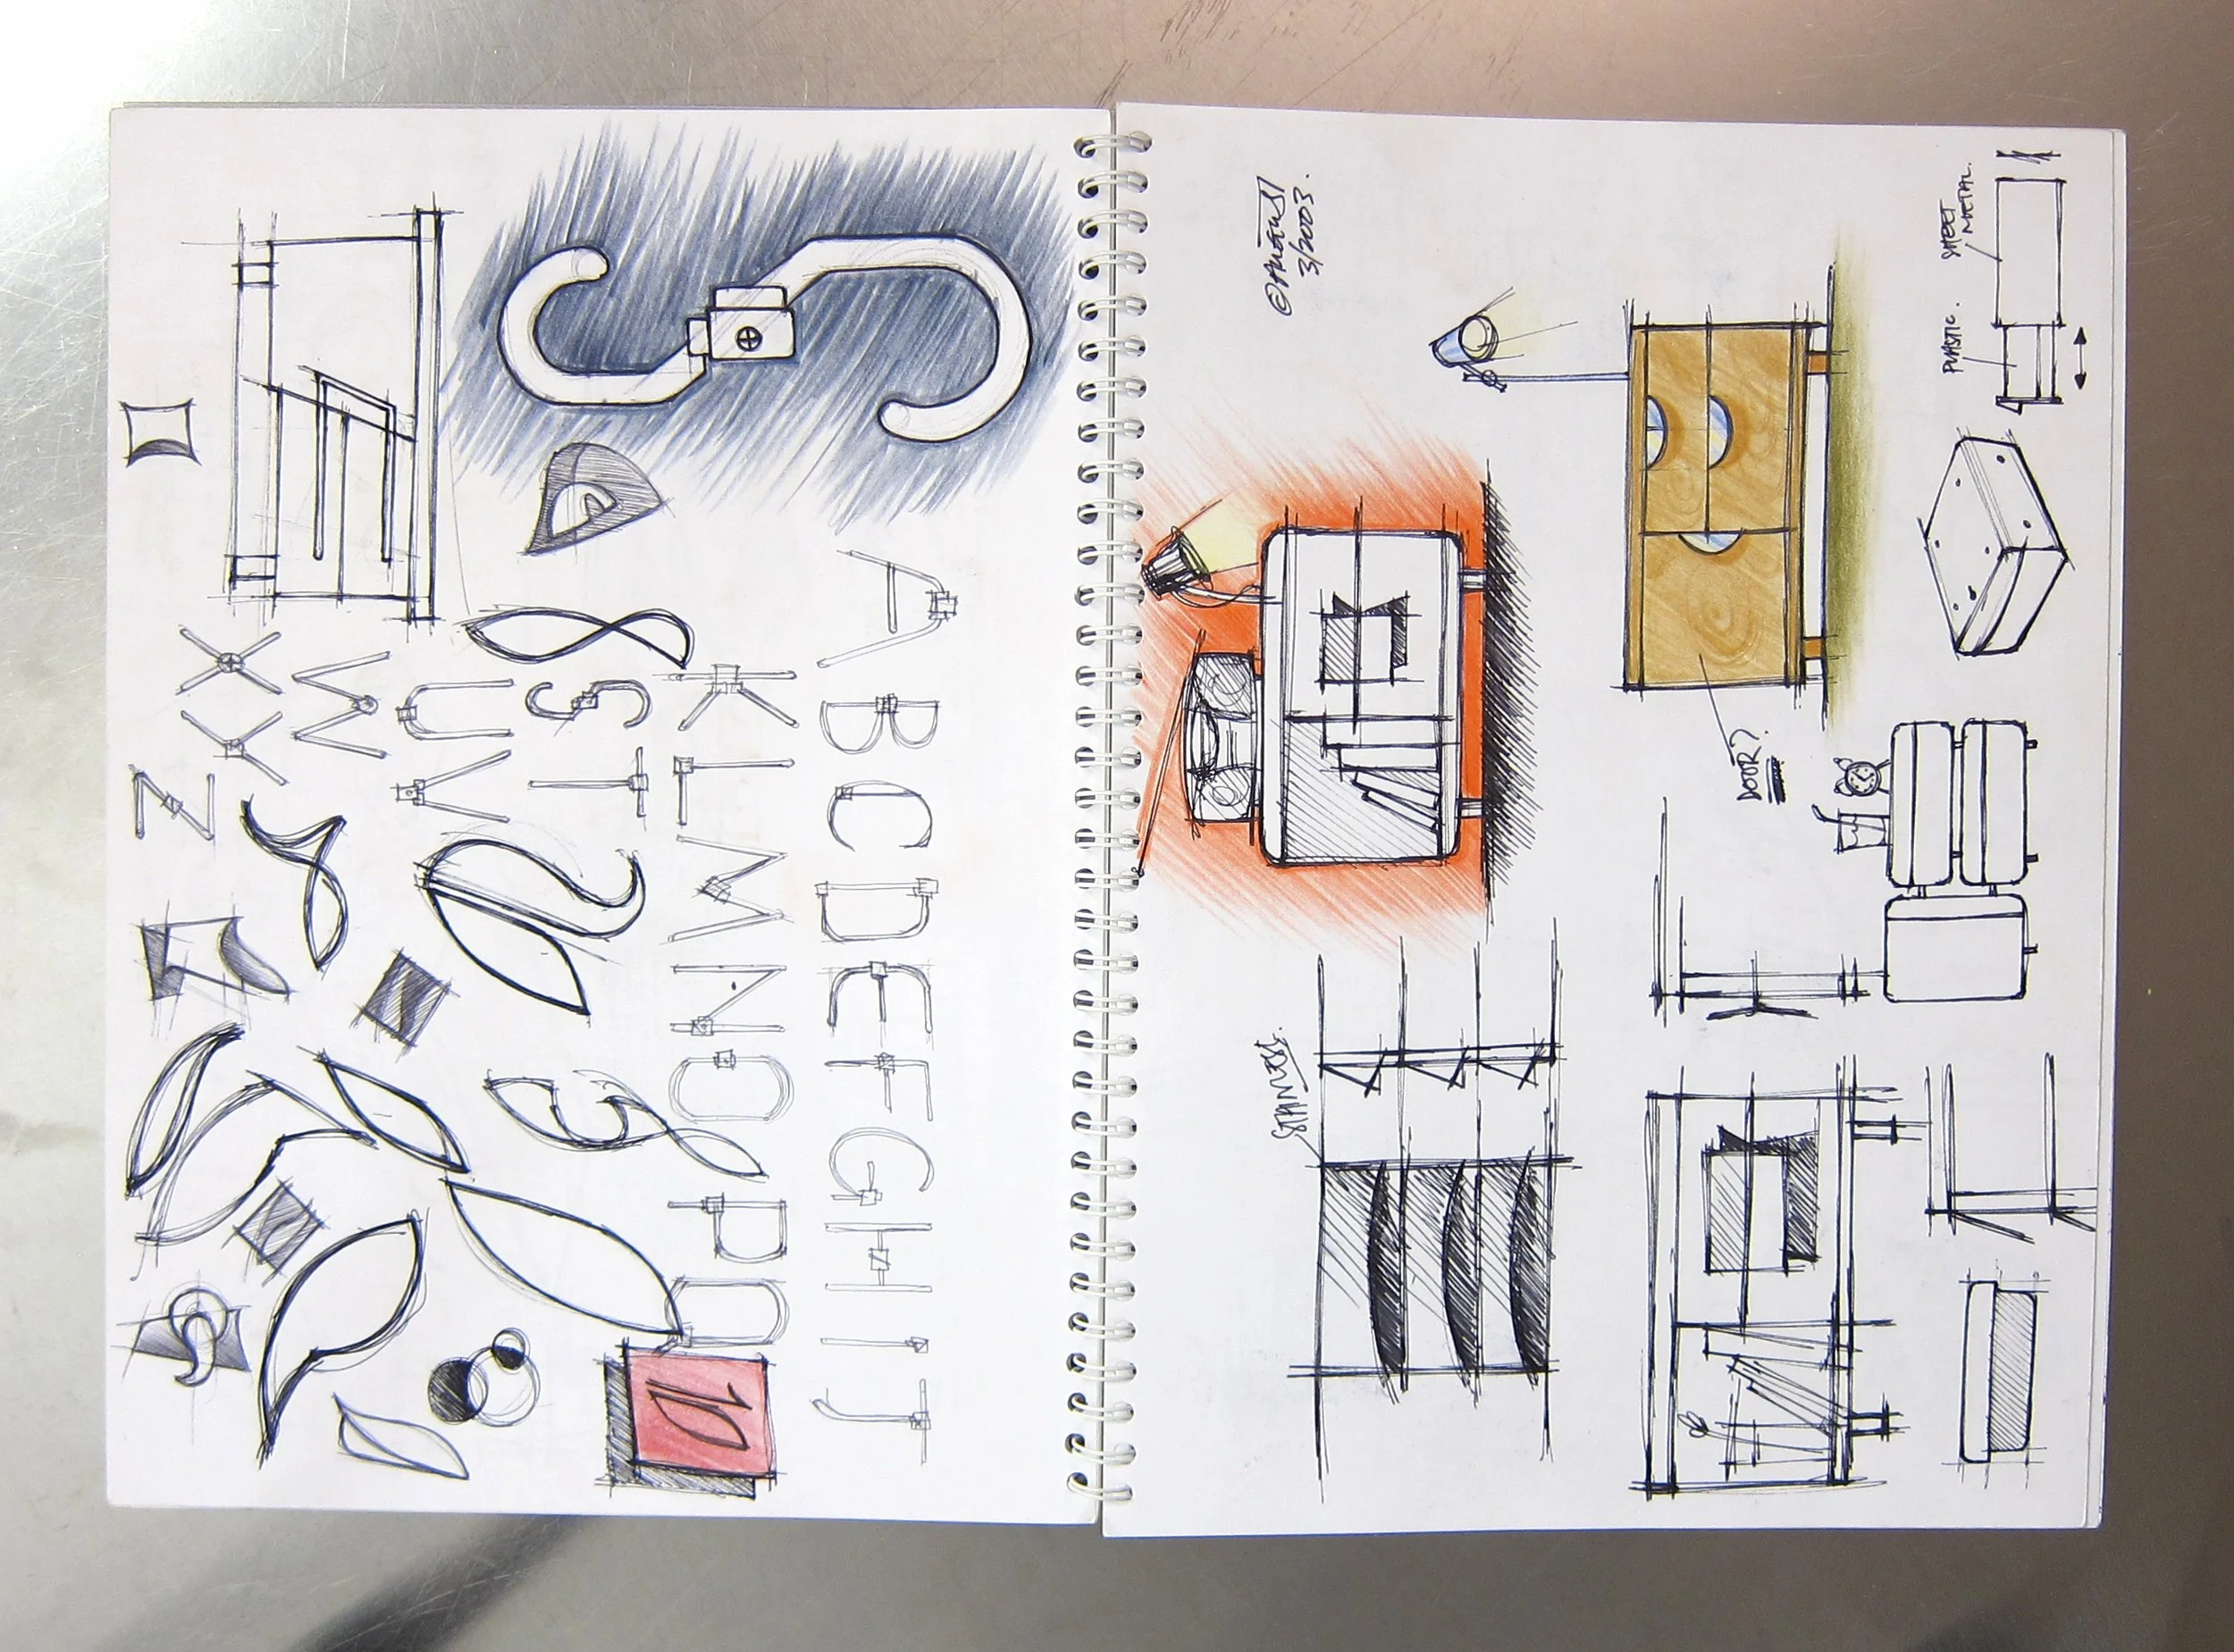 S
A B C D E F G H I J
K L M N O P Q
10
S T
U V
W
X Y
Z
3/2003.
STAINLESS.
DOOR?
PLASTIC.
SHEET
METAL.